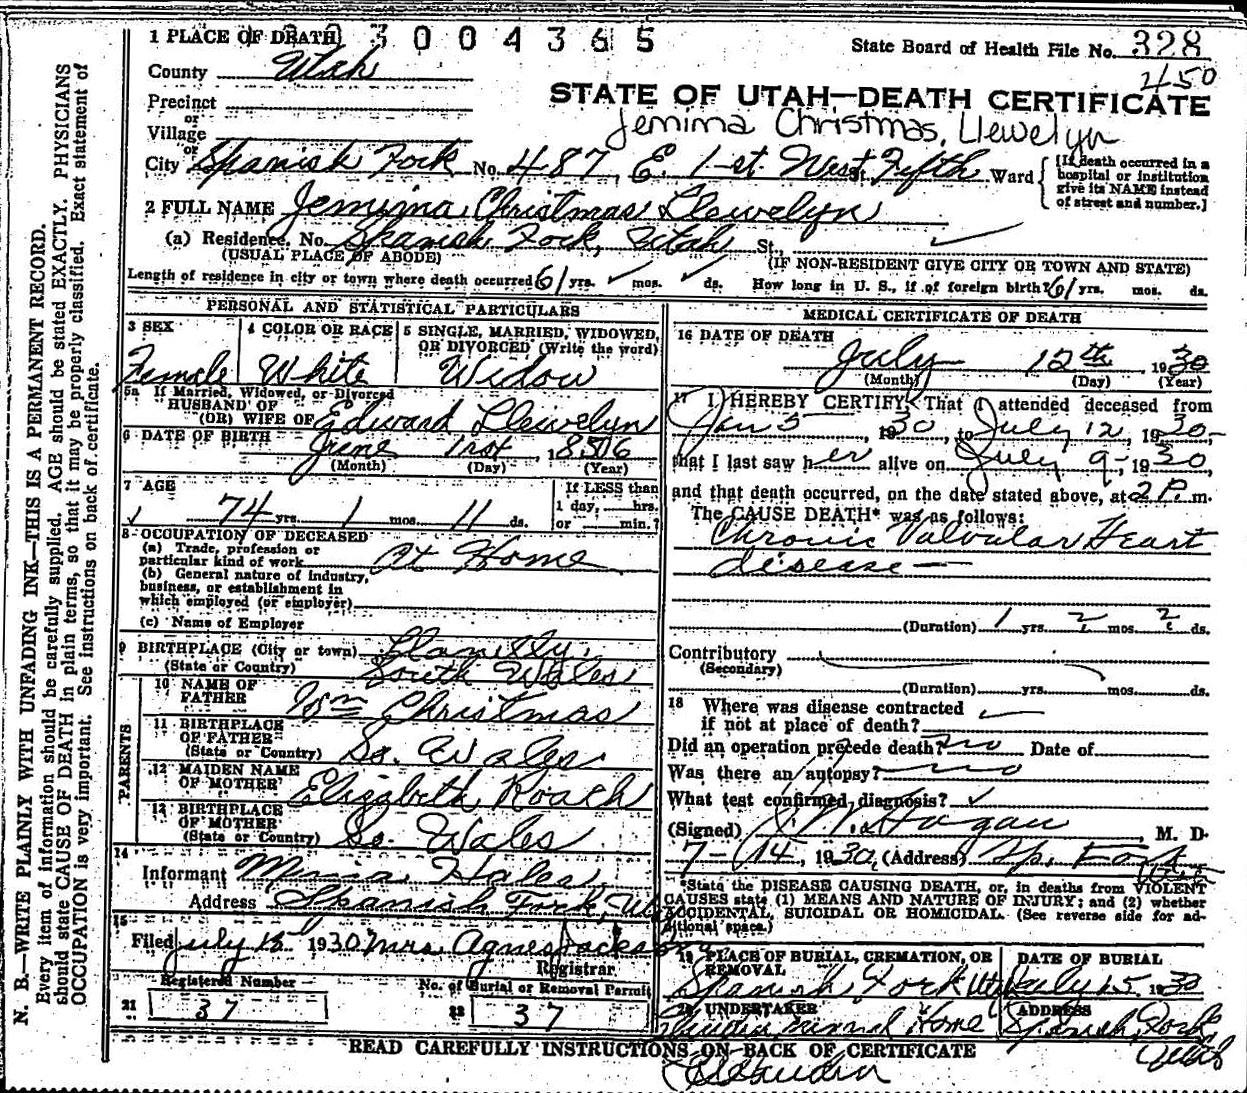 1 PLACE OF DEATH 3004365
State Board of Health File No. 328
County Utah
2450
Precinct
or
STATE OF UTAH—DEATH CERTIFICATE
Village
Jemima Christmas, Llewelyn
or
City Spanish Fork No. 487, E. 1st. West St. Fifth Ward
[If death occurred in a hospital or institution give its NAME instead of street and number.]
2 FULL NAME Jemima Christmas Llewelyn
(a) Residence. No. Spanish Fork, Utah St., ✓
(USUAL PLACE OF ABODE) (IF NON-RESIDENT GIVE CITY OR TOWN AND STATE)
Length of residence in city or town where death occurred 61 yrs. ✓ mos. ✓ ds. How long in U. S., if of foreign birth? 61 yrs. mos. ds.
PERSONAL AND STATISTICAL PARTICULARS
3 SEX
Female
4 COLOR OR RACE
White
5 SINGLE, MARRIED, WIDOWED, OR DIVORCED (Write the word)
Widow
5a If Married, Widowed, or Divorced
HUSBAND OF
(OR) WIFE OF Edward Llewelyn
6 DATE OF BIRTH June 1st, 1856
(Month) (Day) (Year)
7 AGE
74 yrs. 1 mos. 11 ds.
If LESS than
1 day, hrs.
or min.?
8 OCCUPATION OF DECEASED
(a) Trade, profession or
particular kind of work At Home
(b) General nature of industry,
business, or establishment in
which employed (or employer)
(c) Name of Employer
9 BIRTHPLACE (City or town) Llanelly,
(State or Country) South Wales
PARENTS
10 NAME OF
FATHER Wm Christmas
11 BIRTHPLACE
OF FATHER
(State or Country) So. Wales
12 MAIDEN NAME
OF MOTHER Elizabeth Roach
13 BIRTHPLACE
OF MOTHER
(State or Country) So. Wales
14
Informant Hales,
Address Spanish Fork, Ut
15
Filed July 1930 Mrs. Agnes Jackson
Registrar
Registered Number
21 37
No. of Burial or Removal Permit
22 37
MEDICAL CERTIFICATE OF DEATH
16 DATE OF DEATH
July 12th, 1930
(Month) (Day) (Year)
17 I HEREBY CERTIFY, That I attended deceased from
Jan 5, 1930, to July 12, 1930
that I last saw her alive on July 9 - 1930,
and that death occurred, on the date stated above, at 2 P. m.
The CAUSE DEATH* was as follows:
Chronic Valvular Heart
disease —
(Duration) 1 yrs. 2 mos. 2 ds.
Contributory
(Secondary)
(Duration) yrs. mos. ds.
18 Where was disease contracted
if not at place of death?
Did an operation precede death? no Date of
Was there an autopsy? no
What test confirmed diagnosis? ✓
(Signed) Hagan, M. D.
7-14, 1930, (Address) Sp. Fork Utah
*State the DISEASE CAUSING DEATH, or, in deaths from VIOLENT
CAUSES state (1) MEANS AND NATURE OF INJURY; and (2) whether
ACCIDENTAL, SUICIDAL OR HOMICIDAL. (See reverse side for ad-
ditional space.)
19 PLACE OF BURIAL, CREMATION, OR
REMOVAL
Spanish Fork Utah
DATE OF BURIAL
July 15, 1930
20 UNDERTAKER
Home
ADDRESS
Spanish Fork,
Utah
READ CAREFULLY INSTRUCTIONS ON BACK OF CERTIFICATE
N. B.—WRITE PLAINLY WITH UNFADING INK—THIS IS A PERMANENT RECORD.
Every item of information should be carefully supplied. AGE should be stated EXACTLY. PHYSICIANS
should state CAUSE OF DEATH in plain terms, so that it may be properly classified. Exact statement of
OCCUPATION is very important. See instructions on back of certificate.